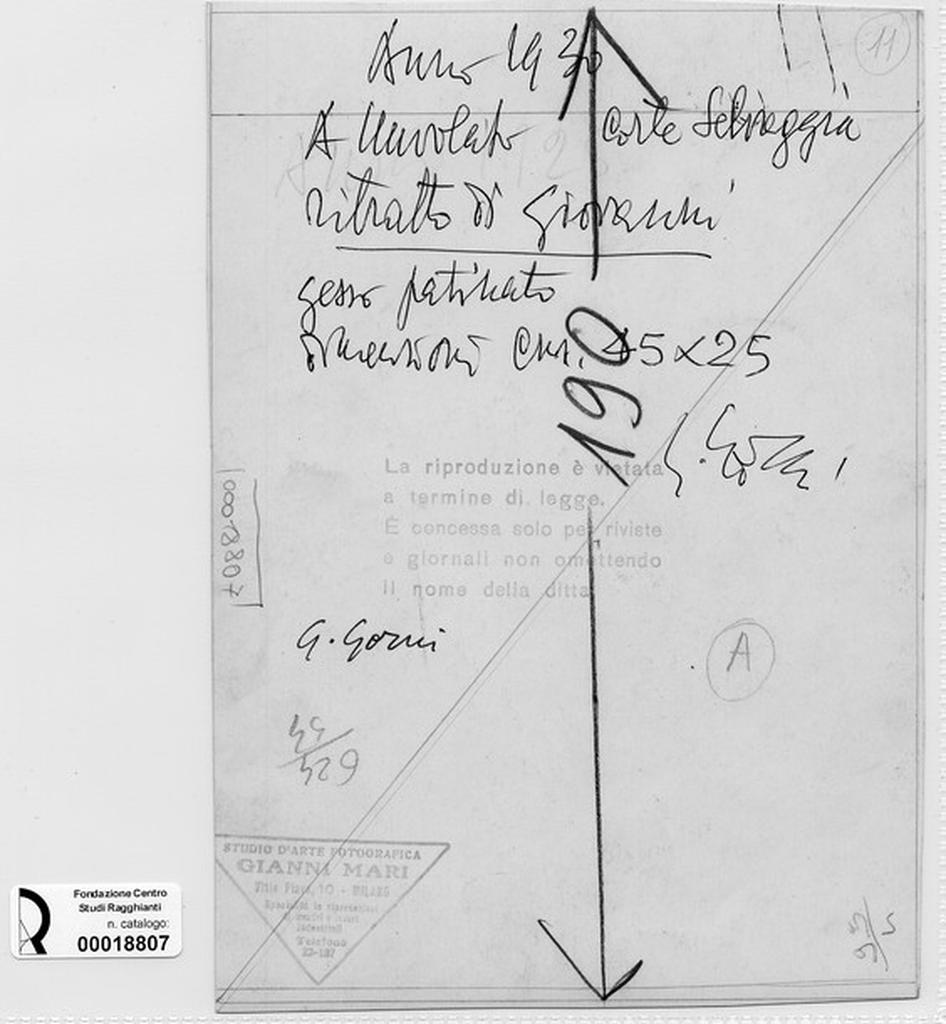 11
Anno 1930
A Nuvolato Corte Selvaggia
ritratto di Giovanni
gesso patinato
dimensioni cm. 45x25
190
G. Gorni
La riproduzione è vietata
a termine di legge.
È concessa solo per riviste
e giornali non omettendo
il nome della ditta
00018807
G. Gorni
A
STUDIO D'ARTE FOTOGRAFICA
GIANNI MARI
10 - MILANO
Telefono
Fondazione Centro
Studi Ragghianti
n. catalogo:
00018807